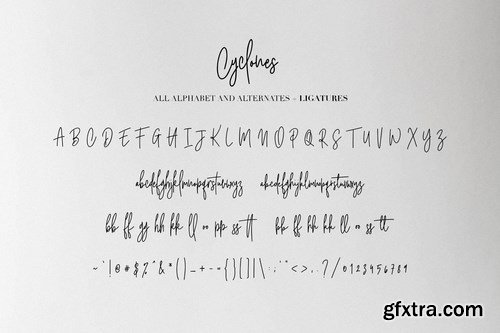 Cyclones
ALL ALPHABET AND ALTERNATES + LIGATURES
A B C D E F G H I J K L M N O P Q R S T U V W X Y Z
abcdefghijklmnopqrstuvwxyz abcdefghijklmnopqrstuvwxyz
bb ff gg hh kk ll oo pp ss tt bb ff hh kk ll oo ss tt
~ ` ! @ # $ % ^ & * ( ) _ + - = { } [ ] | \ : ; ' " < > , . ? / 0 1 2 3 4 5 6 7 8 9
gfxtra.com